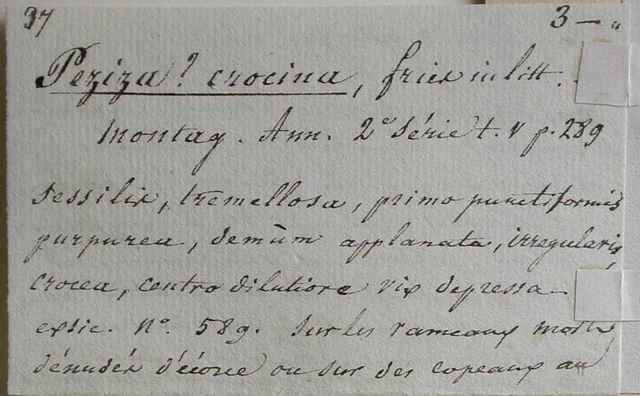 37 3 — "
Peziza? crocina, fries in litt.
Montag. Ann. 2e Série t. V p. 289
Sessilis, tremellosa, primo punctiformis
purpurea, demùm applanata, irregularis,
crocea, centro dilutiore vix depressa —
exsic. No. 589. Sur les rameaux morts
dénudés d'écorce ou sur des copeaux au